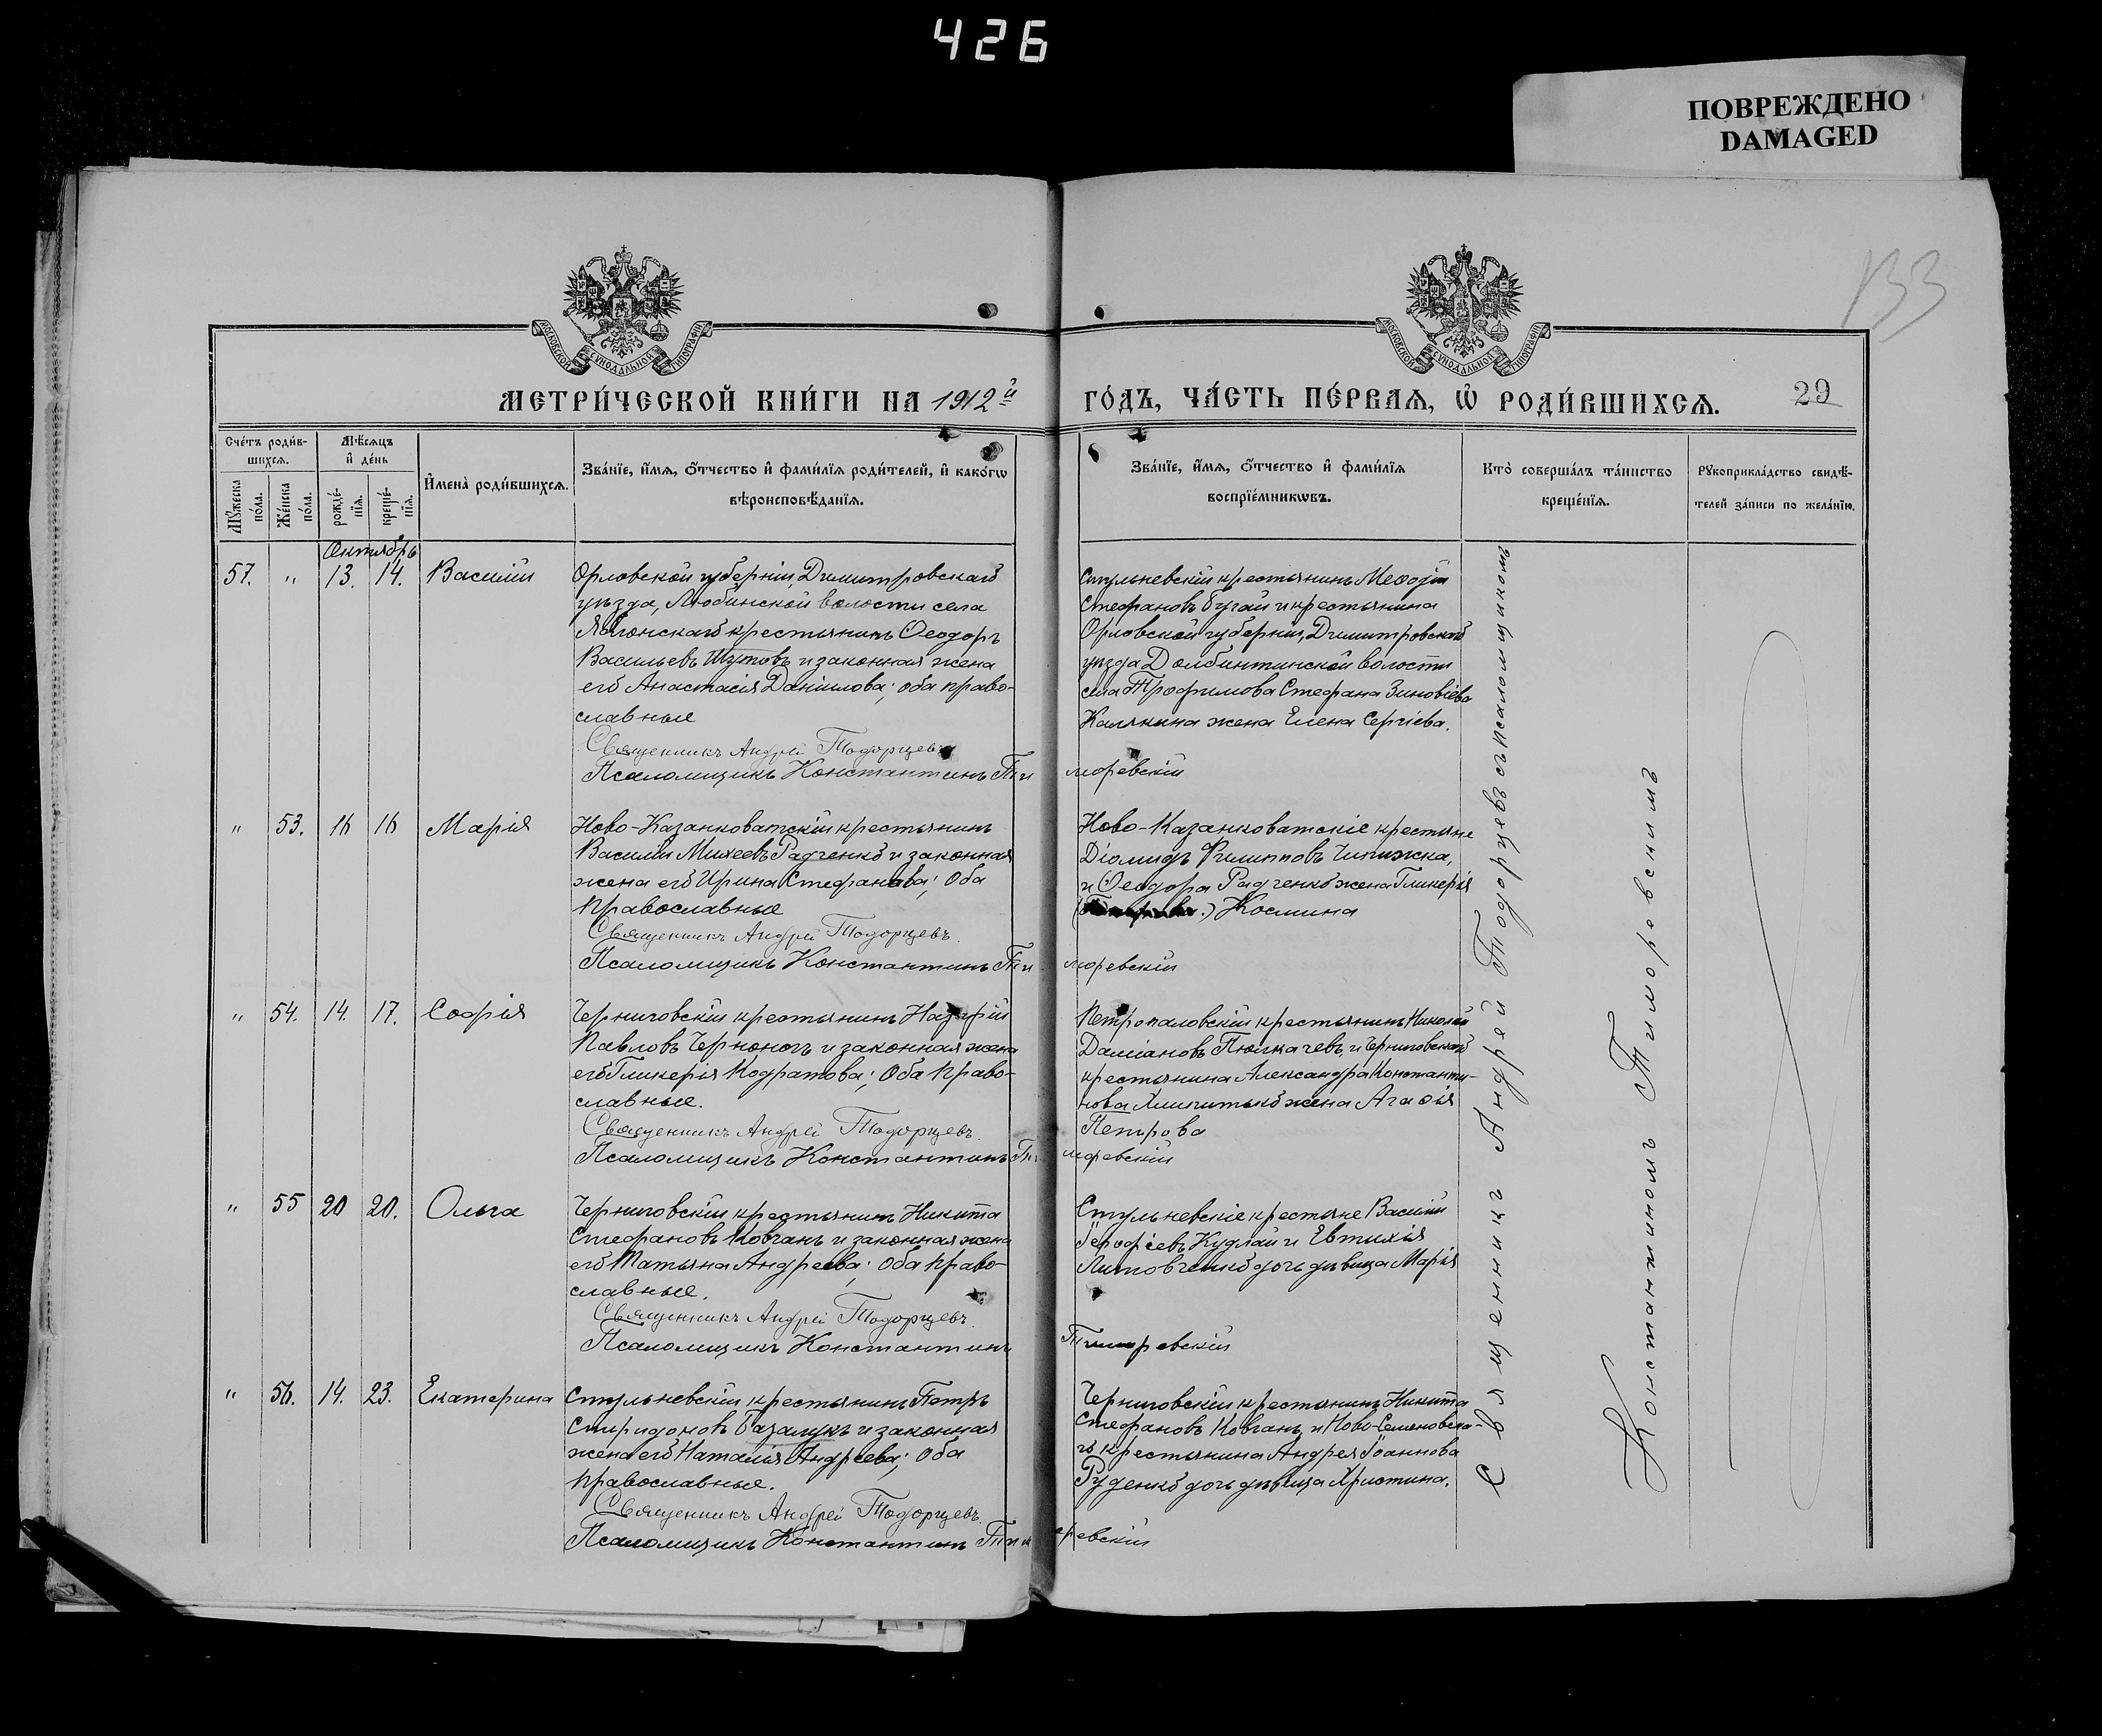 426
ПОВРЕЖДЕНО
DAMAGED
133
МОСКОВСКОЙ СѴНОДАЛЬНОЙ ТИПОГРАФІИ
МОСКОВСКОЙ СѴНОДАЛЬНОЙ ТИПОГРАФІИ
МЕТРИ́ЧЕСКОЙ КНИ́ГИ НА 1912й
ГО́ДЪ, ЧА́СТЬ ПЕ́РВАѦ, Ѡ҆ РОДИ́ВШИХСѦ.
29
Сче́тъ роди́в-
шихсѧ.
Мѣ́сѧцъ
и҆ де́нь
Мꙋ́жеска по́ла.
Же́нска по́ла.
рожде́-
нїѧ.
креще́-
нїѧ.
И҆мена̀ роди́вшихсѧ.
Зва́нїе, и҆́мѧ, ѻ҆́тчество и҆ фами́лїѧ роди́телей, и҆ како́гѡ
вѣроисповѣ́данїѧ.
Зва́нїе, и҆́мѧ, ѻ҆́тчество и҆ фами́лїѧ
воспрїе́мникѡвъ.
Кто̀ соверша́лъ та́инство
креще́нїѧ.
Рꙋкоприкла́дство свидѣ́-
телей за́писи по жела́нїю.
Октябрь
57. " 13. 14. Василій
Орловской губерніи, Димитровскаго
уѣзда, Любинской волости села
Яблонскаго крестьянинъ Ѳеодоръ
Васильевъ Шутовъ и законная жена
его Анастасія Даніилова; оба право-
славные
Священникъ Андрей Тодорцевъ
Псаломщикъ Константинъ Тимофевскій
Стульневскій крестьянинъ Меѳодій
Стефановъ Бугай и крестьянина
Орловской губерніи, Димитровскаго
уѣзда Долбинтинской волости
села Трофимова Стефана Зиновіева
Калякина жена Елена Сергіева.
" 53. 16 16 Марія
Ново-Казанковатскій крестьянинъ
Василій Михеевъ Радченко и законная
жена его Ирина Стефанова; Оба
православные
Священникъ Андрей Тодорцевъ.
Псаломщикъ Константинъ Тиморевскій
Ново-Казанковатскіе крестьяне
Діомидъ Филипповъ Чипижка,
и Ѳеодора Радченко жена Гликерія
Космина
" 54. 14. 17. Софія
Черниговскій крестьянинъ Назарій
Павловъ Черноногъ и законная жена
его Гликерія Кодратова; Оба право-
славные.
Священникъ Андрей Тодорцевъ.
Псаломщикъ Константинъ Тиморевскій
Петропаловскій крестьянинъ Николай
Даміановъ Толмачевъ, и Черниговскаго
крестьянина Александра Константи-
нова жена Агаѳія
Петрова
" 55 20 20. Ольга
Черниговскій крестьянинъ Никита
Стефановъ Ковганъ и законная жена
его Татьяна Андреева; Оба право-
славные.
Священникъ Андрей Тодорцевъ.
Псаломщикъ Константинъ Тиморевскій
Стульневскіе крестьяне Василій
Іерофіевъ Кудлай и Евтихія
Литовченко дочь дѣвица Марія
" 56. 14. 23. Екатерина
Стульневскій крестьянинъ Петръ
Спиридоновъ Базалукъ и законная
жена его Наталія Андреева; Оба
православные.
Священникъ Андрей Тодорцевъ.
Псаломщикъ Константинъ Тиморевскій
Черниговскій крестьянинъ Никита
Стефановъ Ковганъ, и Ново-Семеновска-
го крестьянина Андрея Іоаннова
Руденко дочь дѣвица Христина.
Священникъ Андрей Тодорцевъ съ псаломщикомъ
Константиномъ Тиморевскимъ